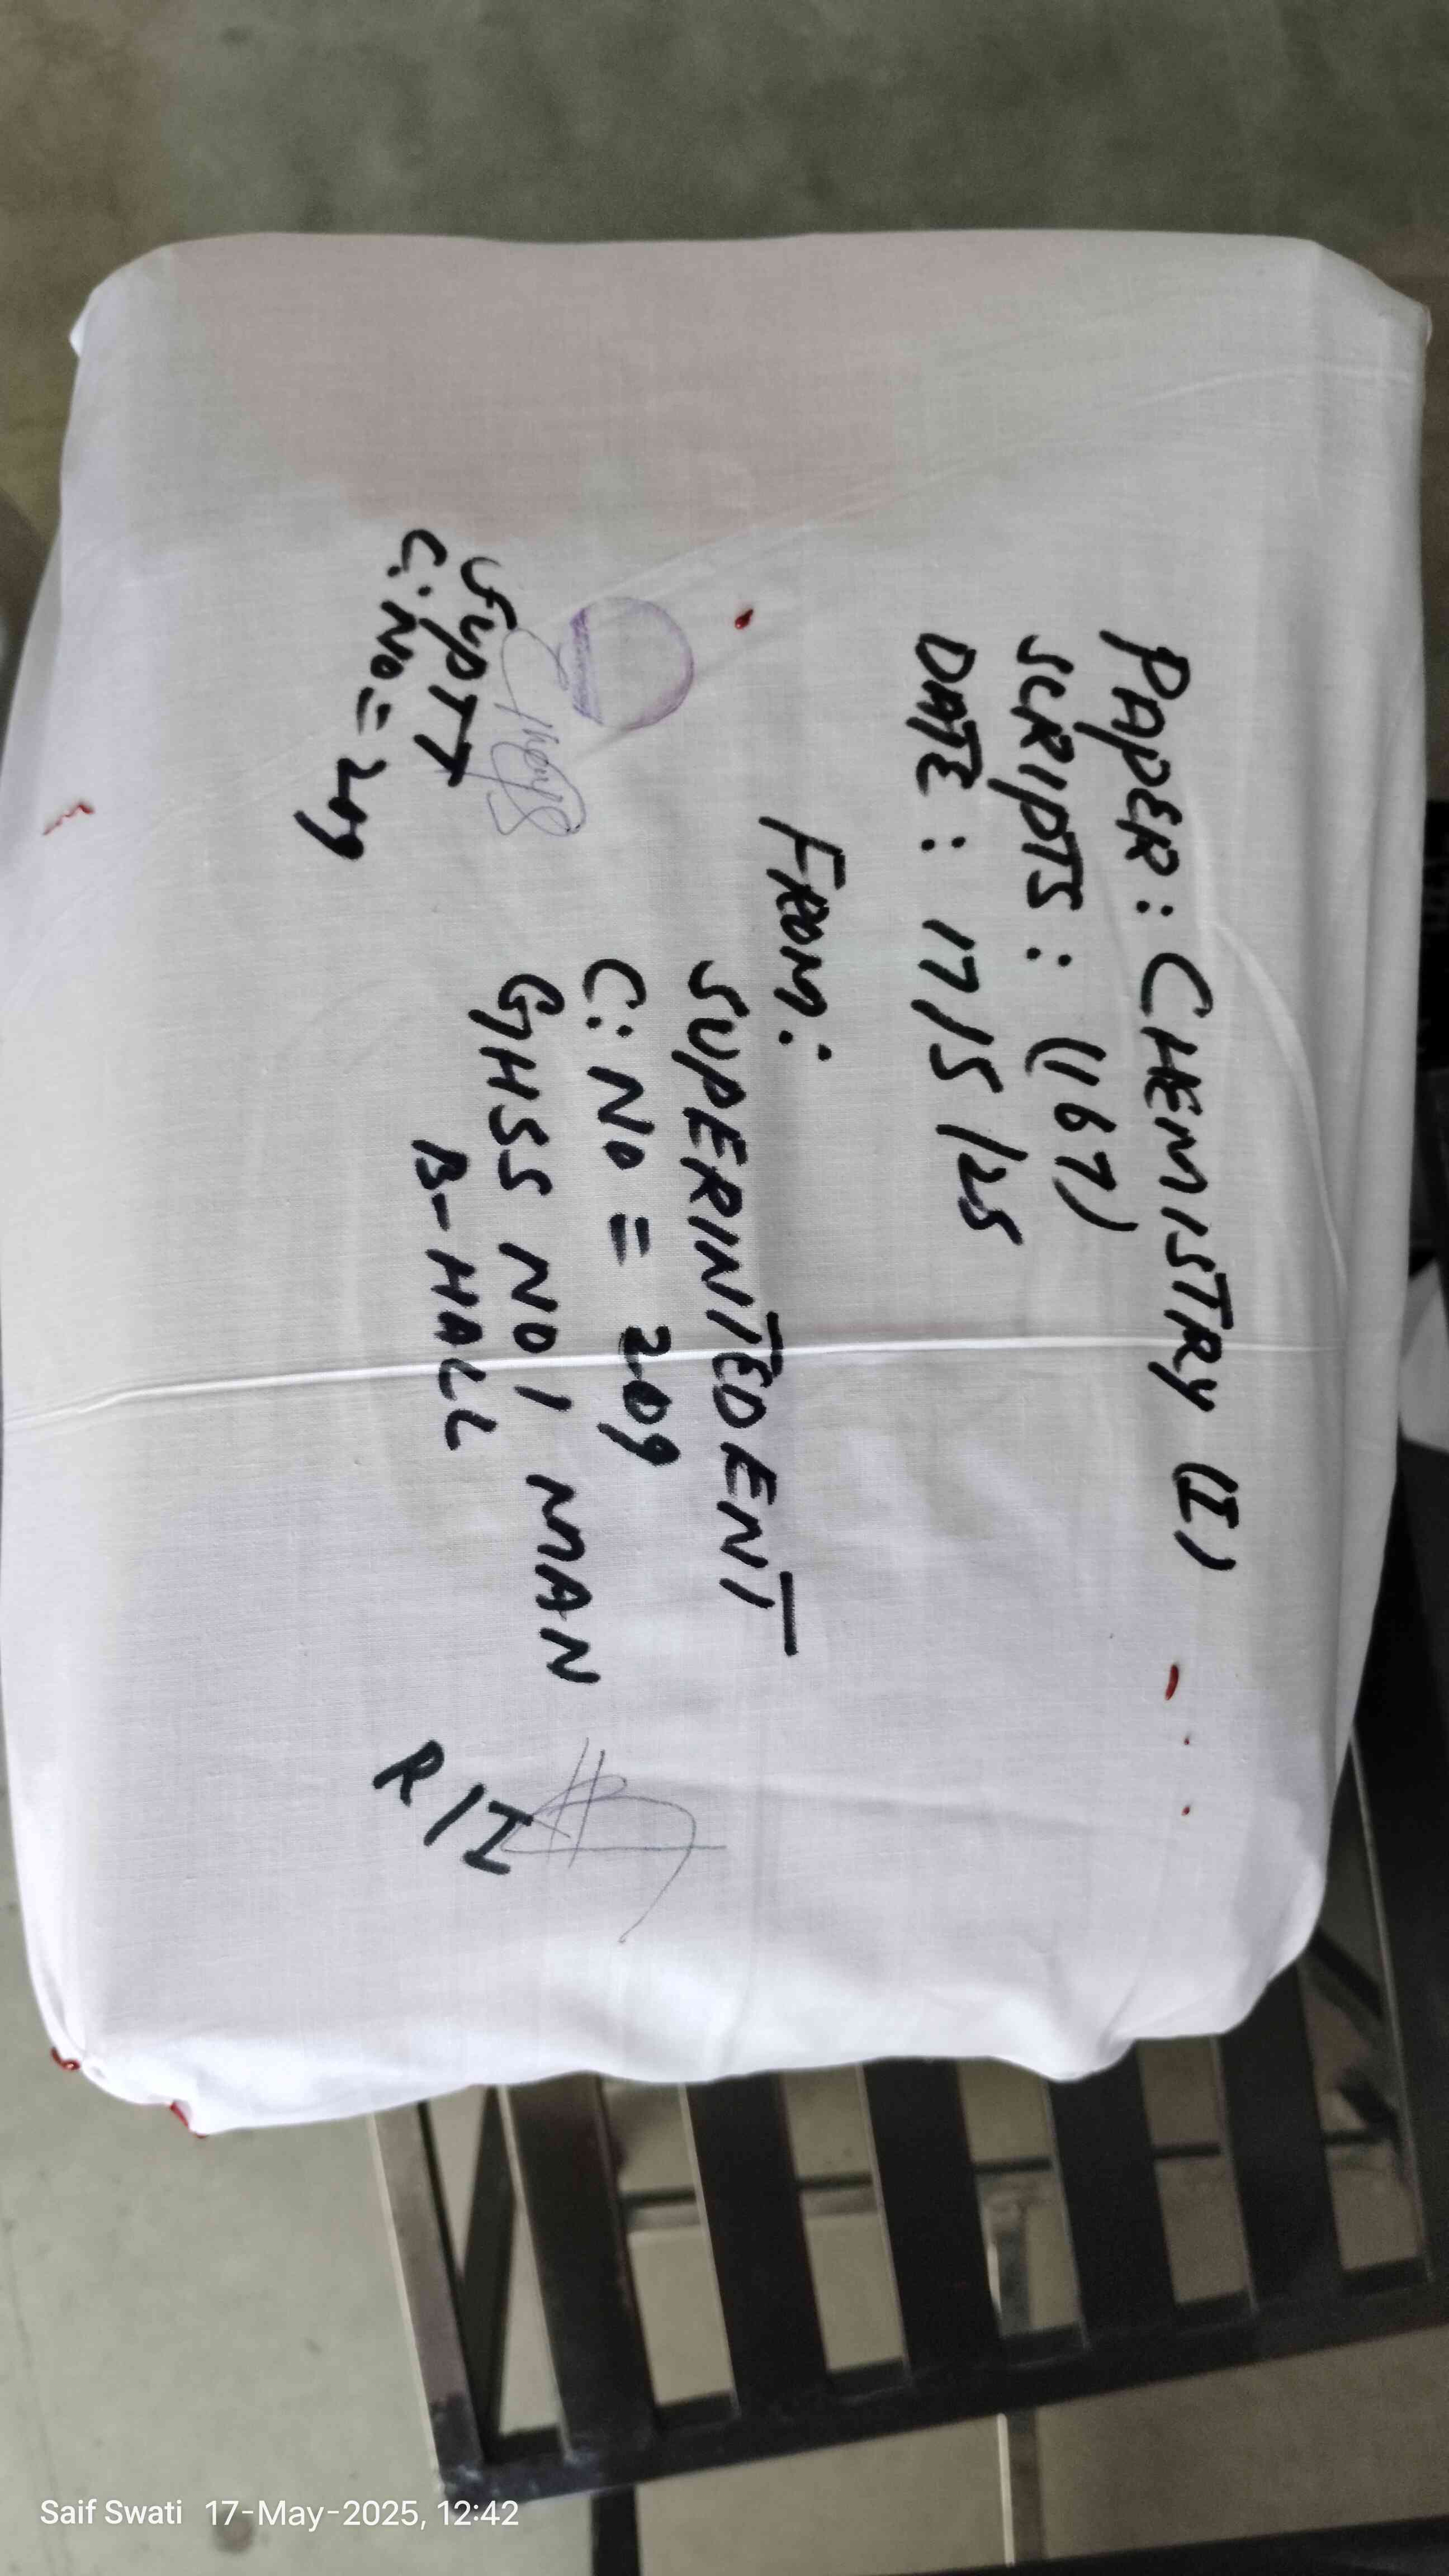 PAPER: CHEMISTRY (I)
SCRIPTS: (167)
DATE: 17/5/25
FROM:
SUPERINTEDENT
C: NO = 209
GHSS NO 1 MAN
B-HALL
SUPTT
C: NO = 209
R/I
Saif Swati 17-May-2025, 12:42